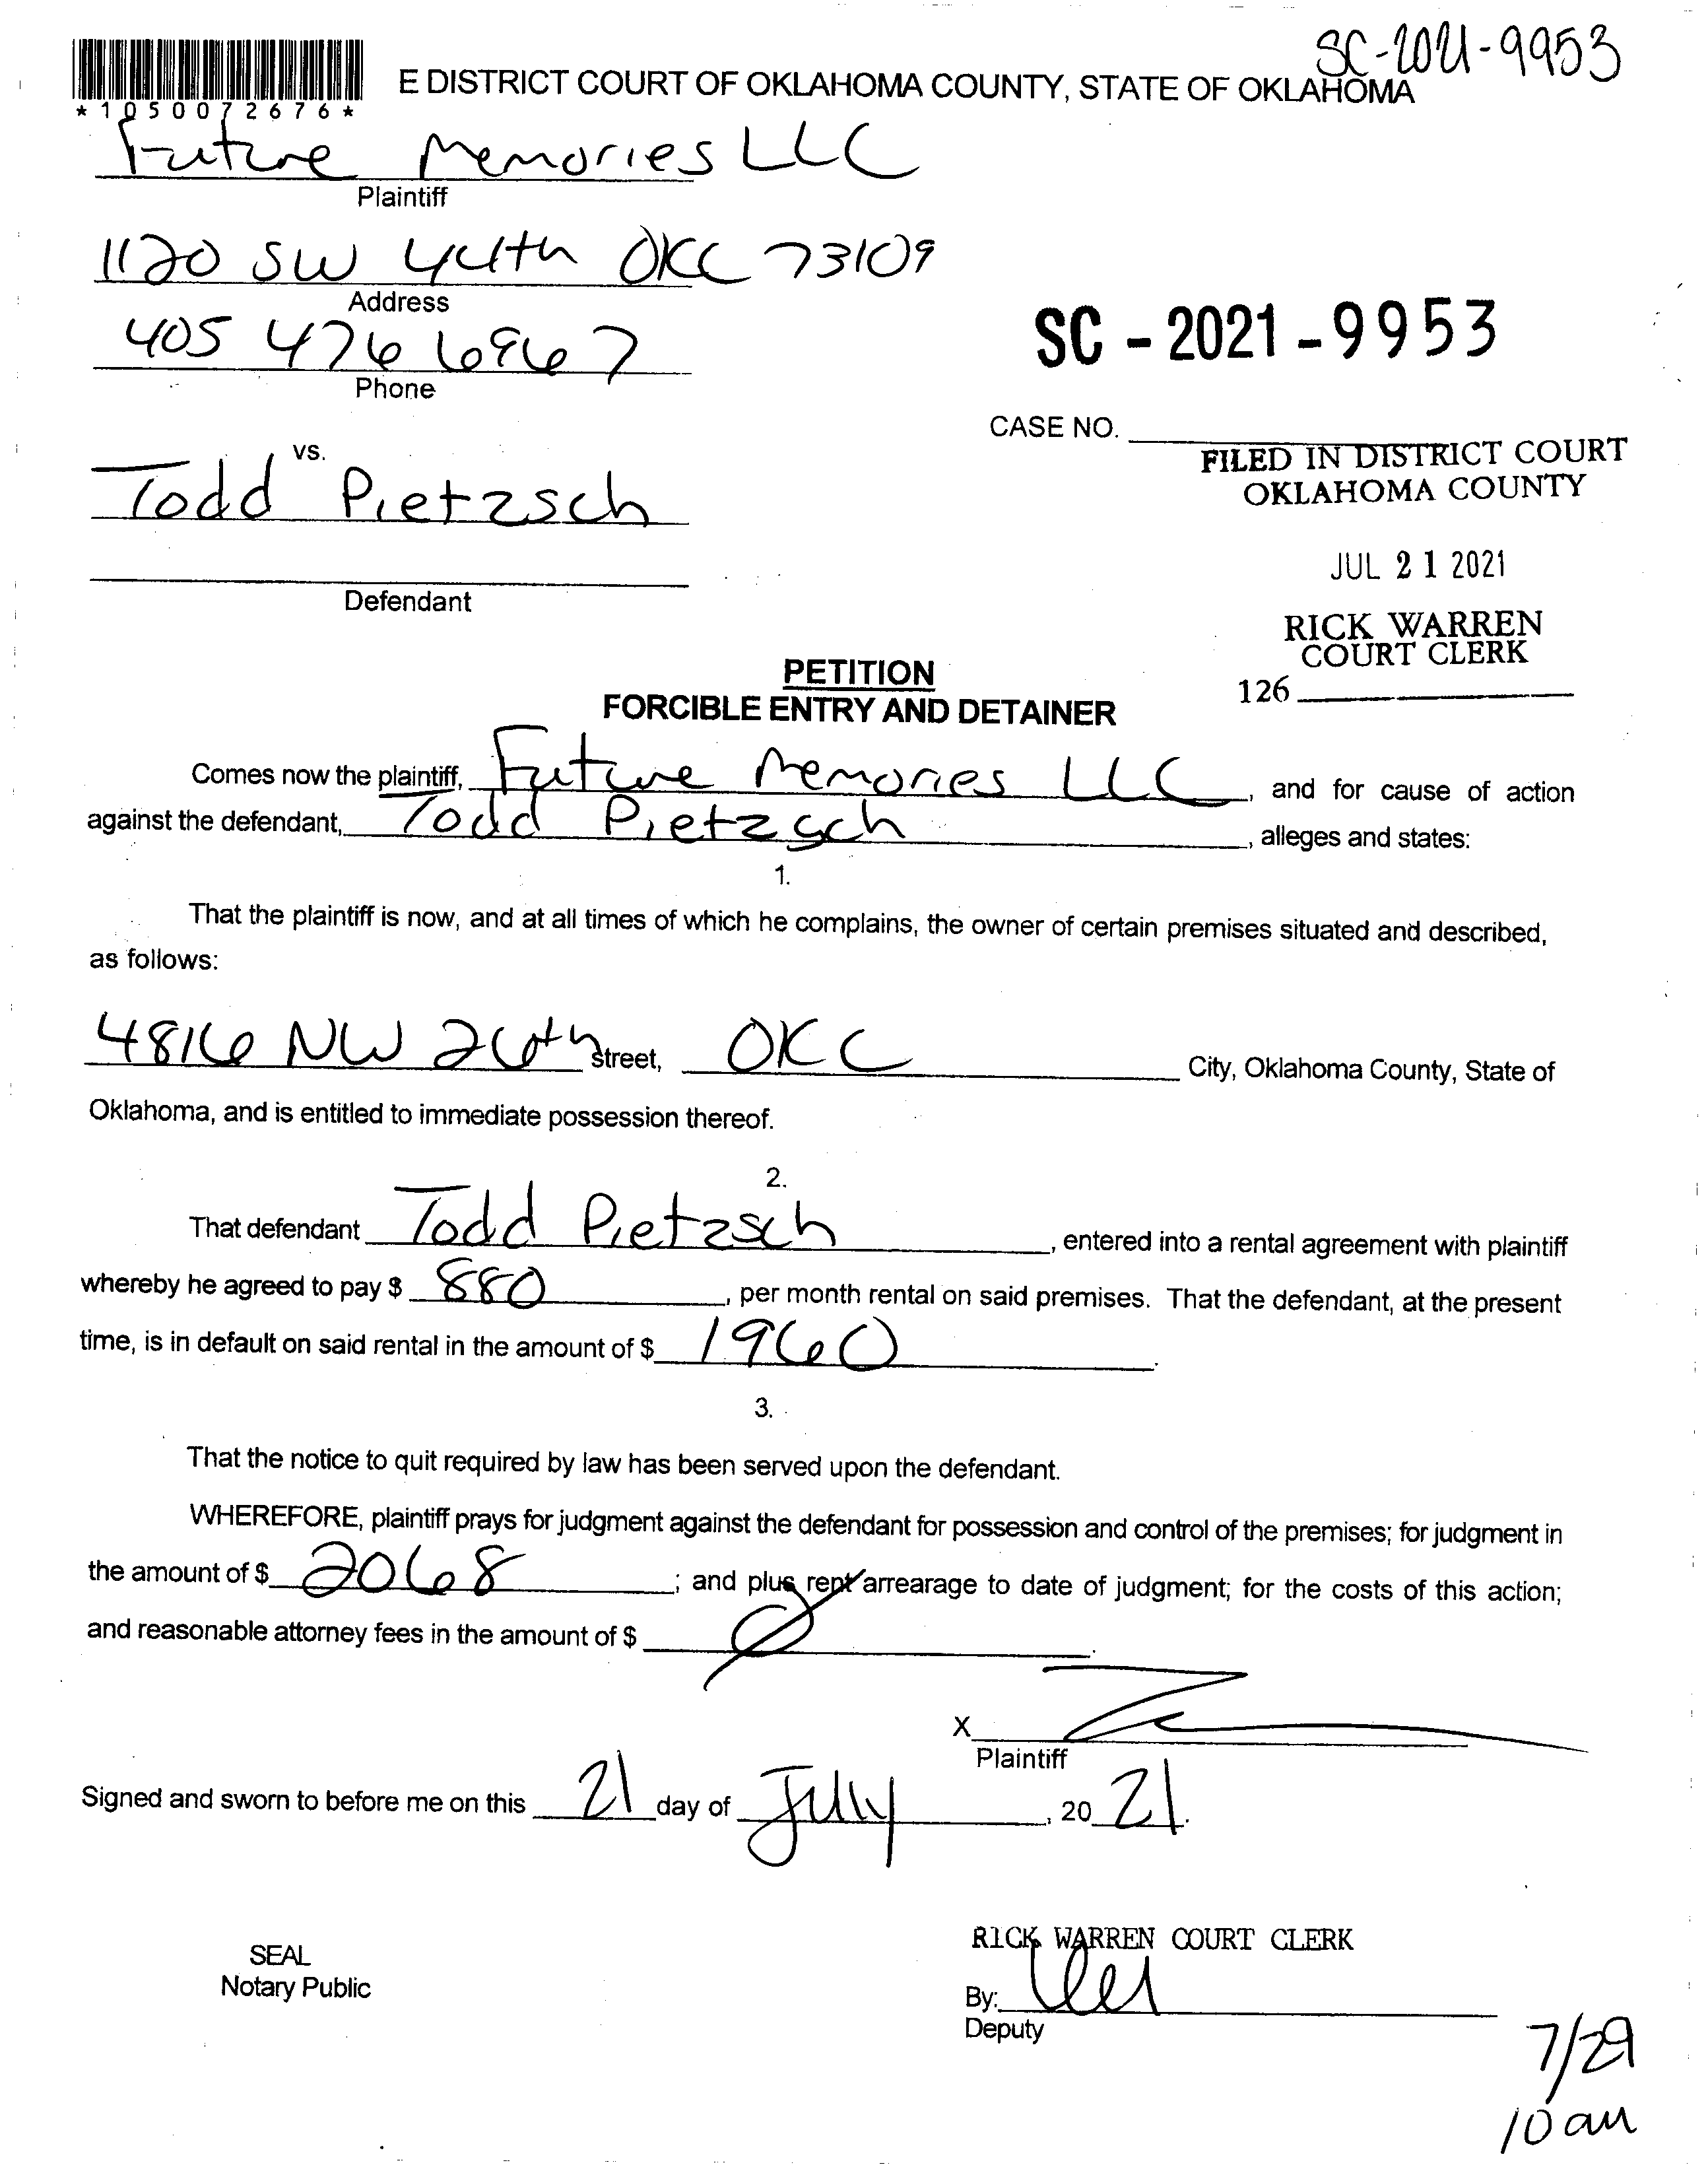 SC-2021-9953
E DISTRICT COURT OF OKLAHOMA COUNTY, STATE OF OKLAHOMA
*1050072676*
Future Memories LLC
Plaintiff
1120 SW 44th OKC 73109
Address
405 476 6967
Phone
SC - 2021 - 9953
CASE NO.
vs.
FILED IN DISTRICT COURT
OKLAHOMA COUNTY
Todd Pietzsch
JUL 21 2021
Defendant
RICK WARREN
COURT CLERK
126
PETITION
FORCIBLE ENTRY AND DETAINER
Comes now the plaintiff, Future Memories LLC, and for cause of action
against the defendant, Todd Pietzsch, alleges and states:
1.
That the plaintiff is now, and at all times of which he complains, the owner of certain premises situated and described,
as follows:
4816 NW 26th street, OKC City, Oklahoma County, State of
Oklahoma, and is entitled to immediate possession thereof.
2.
That defendant Todd Pietzsch, entered into a rental agreement with plaintiff
whereby he agreed to pay $ 880, per month rental on said premises. That the defendant, at the present
time, is in default on said rental in the amount of $ 1960.
3.
That the notice to quit required by law has been served upon the defendant.
WHEREFORE, plaintiff prays for judgment against the defendant for possession and control of the premises; for judgment in
the amount of $ 2068; and plus rent arrearage to date of judgment; for the costs of this action;
and reasonable attorney fees in the amount of $ Ø.
X
Plaintiff
Signed and sworn to before me on this 21 day of July, 20 21.
RICK WARREN COURT CLERK
SEAL
Notary Public
By:
Deputy
7/29
10 am